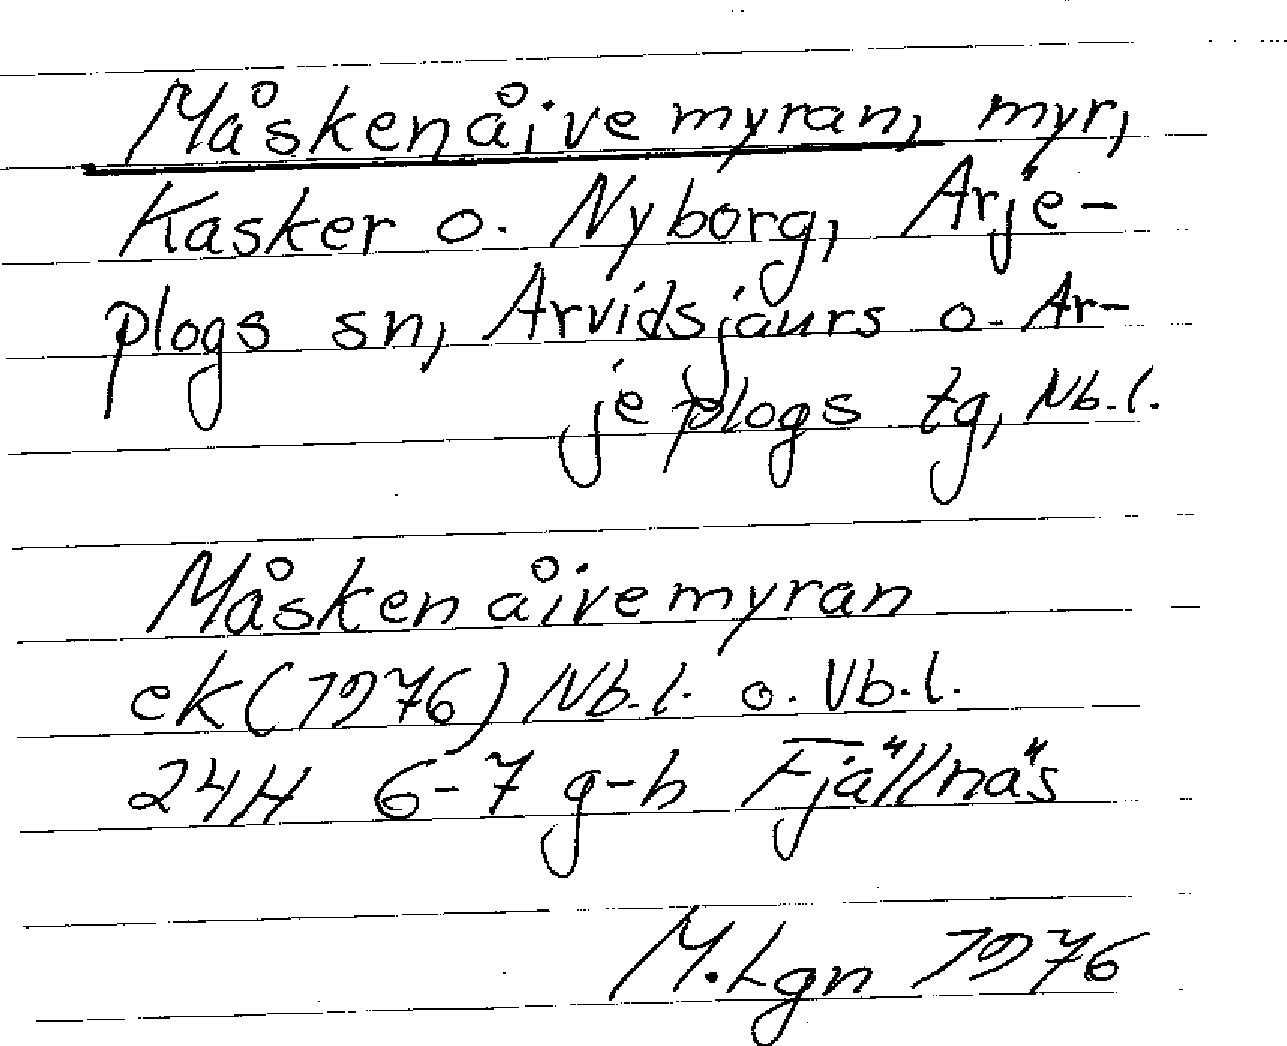 Måskenåivemyran, myr,
Kasker o. Nyborg, Arje-
plogs sn, Arvidsjaurs o. Ar-
jeplogs tg, Nb.l.
Måskenåivemyran
ek(1976) Nb.l. o. Vb.l.
24H 6-7 g-h Fjällnäs
M.Lgn 1976